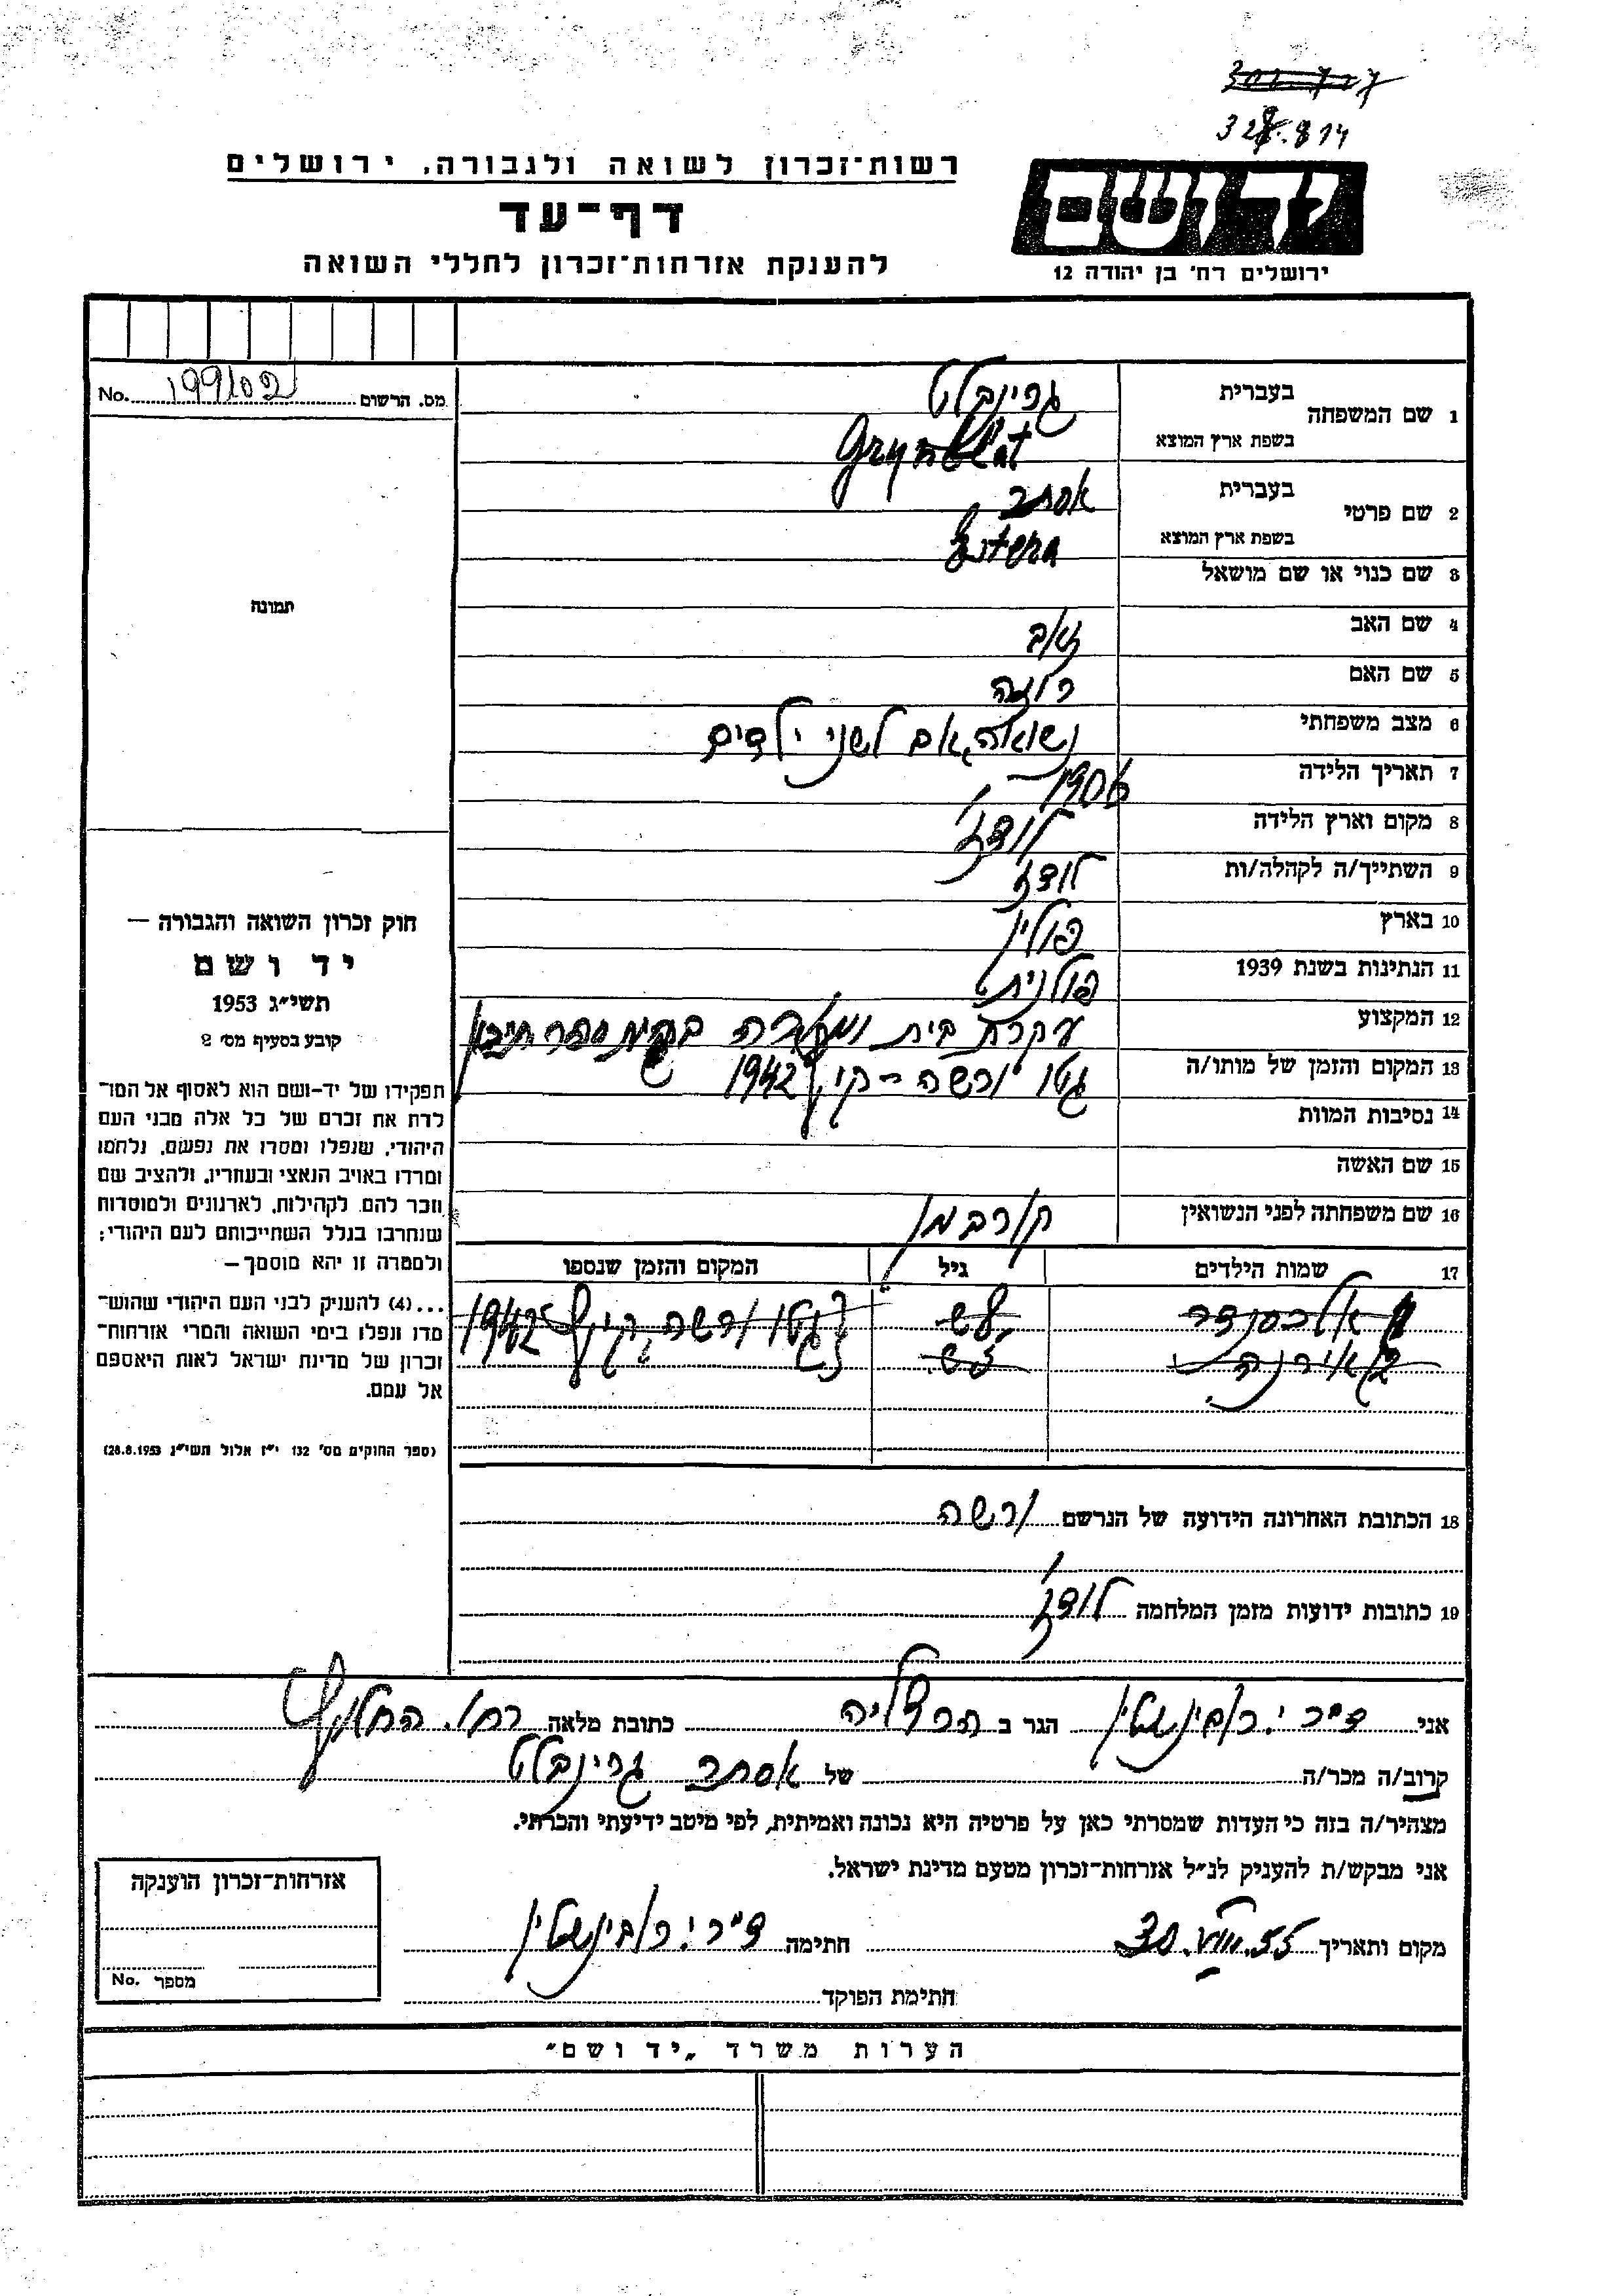 328.814
רשות־זכרון לשואה ולגבורה, ירושלים
יד ושם
דף־עד
להענקת אזרחות־זכרון לחללי השואה
ירושלים רח' בן יהודה 12
מס. הרשום 199102 No.
1 שם המשפחה בעברית גרינבלט
בשפת ארץ המוצא Grynblat
2 שם פרטי בעברית אסתר
בשפת ארץ המוצא Estera
3 שם כנוי או שם מושאל
4 שם האב זאב
5 שם האם רוזה
6 מצב משפחתי נשואה, אם לשני ילדים
7 תאריך הלידה 1906
8 מקום וארץ הלידה לודז'
9 השתייך/ה לקהלה/ות לודז
10 בארץ פולין
11 הנתינות בשנת 1939 פולנית
12 המקצוע עקרת בית ומורה בבית ספר תיכון
13 המקום והזמן של מותו/ה גטו ורשה - קיץ 1942
14 נסיבות המוות
15 שם האשה
16 שם משפחתה לפני הנשואין
17 שמות הילדים גיל המקום והזמן שנספו
אלכסנדר גטו ורשה, קיץ 1942
אירנה
18 הכתובת האחרונה הידועה של הנרשם ורשה
19 כתובות ידועות מזמן המלחמה לודז'
תמונה
חוק זכרון השואה והגבורה —
יד ושם
תשי״ג 1953
קובע בסעיף מס' 2
תפקידו של יד-ושם הוא לאסוף אל המו־
לדת את זכרם של כל אלה מבני העם
היהודי, שנפלו ומסרו את נפשם, נלחמו
ומרדו באויב הנאצי ובעוזריו, ולהציב שם
וזכר להם, לקהילות, לארגונים ולמוסדות
שנחרבו בגלל השתייכותם לעם היהודי;
ולמטרה זו יהא מוסמך—
...(4) להעניק לבני העם היהודי שהוש־
מדו ונפלו בימי השואה והמרי אזרחות־
זכרון של מדינת ישראל לאות היאספם
אל עמם.
(ספר החוקים מס' 132 י״ז אלול תשי״ג 28.8.1953)
אני ד״ר י. רובינשטין הגר ב הרצליה כתובת מלאה רח'.
קרוב/ה מכר/ה של אסתר גרינבלט
מצהיר/ה בזה כי העדות שמסרתי כאן על פרטיה היא נכונה ואמיתית, לפי מיטב ידיעתי והכרתי.
אני מבקש/ת להעניק לנ״ל אזרחות־זכרון מטעם מדינת ישראל.
מקום ותאריך 30.VIII.55 חתימה ד״ר י. רובינשטין
חתימת הפוקד
אזרחות־זכרון הוענקה
מספר No.
הערות משרד „יד ושם"